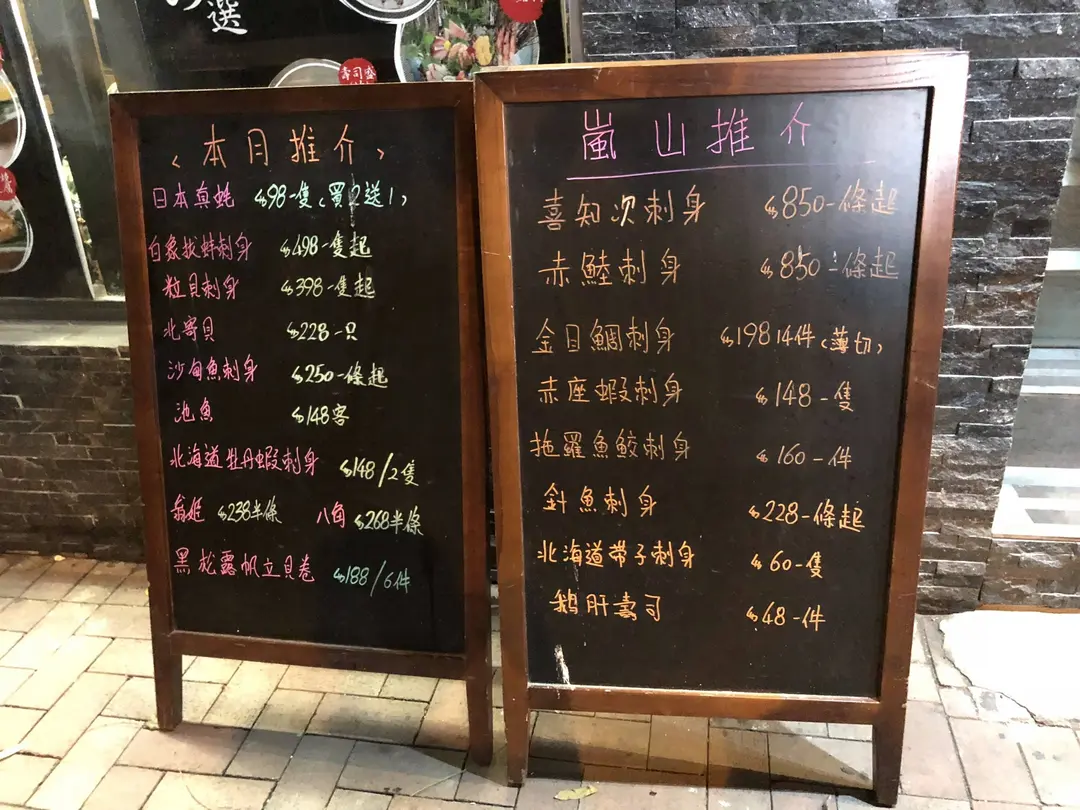 選
壽司盛
〈本月推介〉
日本真蚝 $98一隻(買2送1)
白象拔蚌刺身 $498一隻起
粒貝刺身 $398一隻起
北寄貝 $228一只
沙甸魚刺身 $250一條起
池魚 $148客
北海道牡丹蝦刺身 $148/2隻
翁姫 $238半條 八角 $268半條
黑松露帆立貝卷 $188/6件
嵐山推介
喜知次刺身 $850一條起
赤鯥刺身 $850一條起
金目鯛刺身 $198 14件(薄切)
赤座蝦刺身 $148一隻
拖羅魚鮫刺身 $160一件
針魚刺身 $228一條起
北海道带子刺身 $60一隻
鵝肝壽司 $48一件